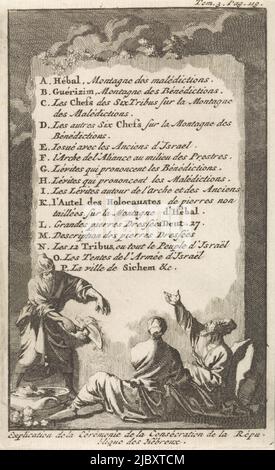 Tom. 3. Pag. 119.
A. Hébal, Montagne des malédictions.
B. Guérizim, Montagne des Bénédictions.
C. Les Chefs des Six Tribus sur la Montagne
des Malédictions.
D. Les autres Six Chefs sur la Montagne des
Bénédictions.
E. Josué avec les Anciens d'Israel
F. l'Arche de l'Aliance au milieu des Prestres.
G. Lévites qui prononcent les Bénédictions.
H. Lévites qui prononcent les Malédictions.
I. Les Lévites autour de l'arche et des Anciens
K. l'Autel des Holocaustes de pierres non
taillées sur la Montagne d'Hébal
L. Grandes pierres Dressées Deut. 27.
M. Description des pierres Dressées
N. Les 12 Tribus, ou tout le Peuple d'Israël
O. Les Tentes de l'Armée d'Israël
P. La ville de Sichem &c.
Explication de la Cérémonie de la Consécration de la Répu-
blique des Hébreux.
alamy
Image ID: 2JBYXTCM
www.alamy.com